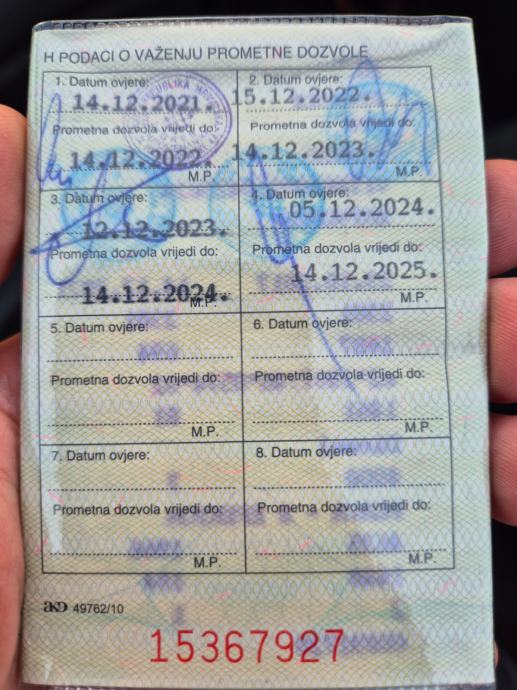 H PODACI O VAŽENJU PROMETNE DOZVOLE
1. Datum ovjere:
14.12.2021.
Prometna dozvola vrijedi do:
14.12.2022.
M.P.
2. Datum ovjere:
15.12.2022.
Prometna dozvola vrijedi do:
14.12.2023.
M.P.
3. Datum ovjere:
12.12.2023.
Prometna dozvola vrijedi do:
14.12.2024.
M.P.
4. Datum ovjere:
05.12.2024.
Prometna dozvola vrijedi do:
14.12.2025.
M.P.
5. Datum ovjere:
Prometna dozvola vrijedi do:
M.P.
6. Datum ovjere:
Prometna dozvola vrijedi do:
M.P.
7. Datum ovjere:
Prometna dozvola vrijedi do:
M.P.
8. Datum ovjere:
Prometna dozvola vrijedi do:
M.P.
AKD 49762/10
15367927